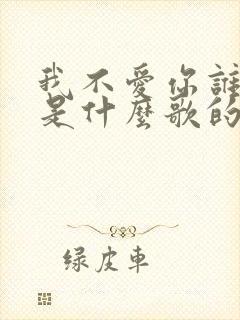 我不愛你誰
是什麼歌的
绿皮車